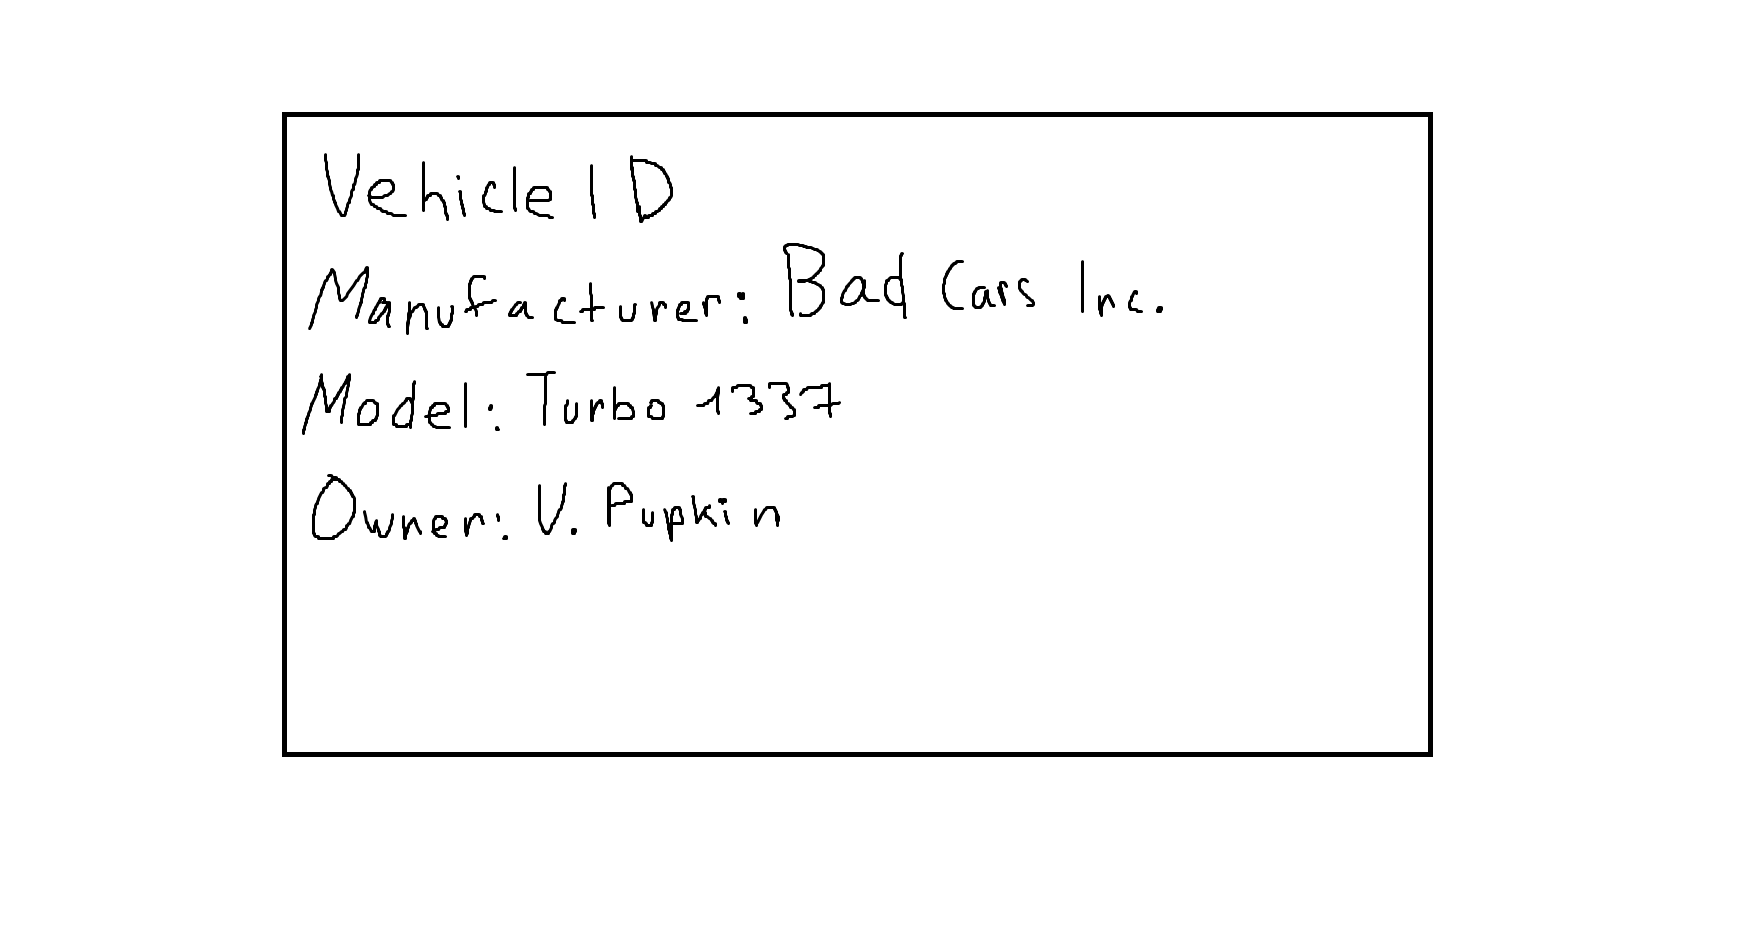 Vehicle ID
Manufacturer: Bad Cars Inc.
Model: Turbo 1337
Owner: V. Pupkin